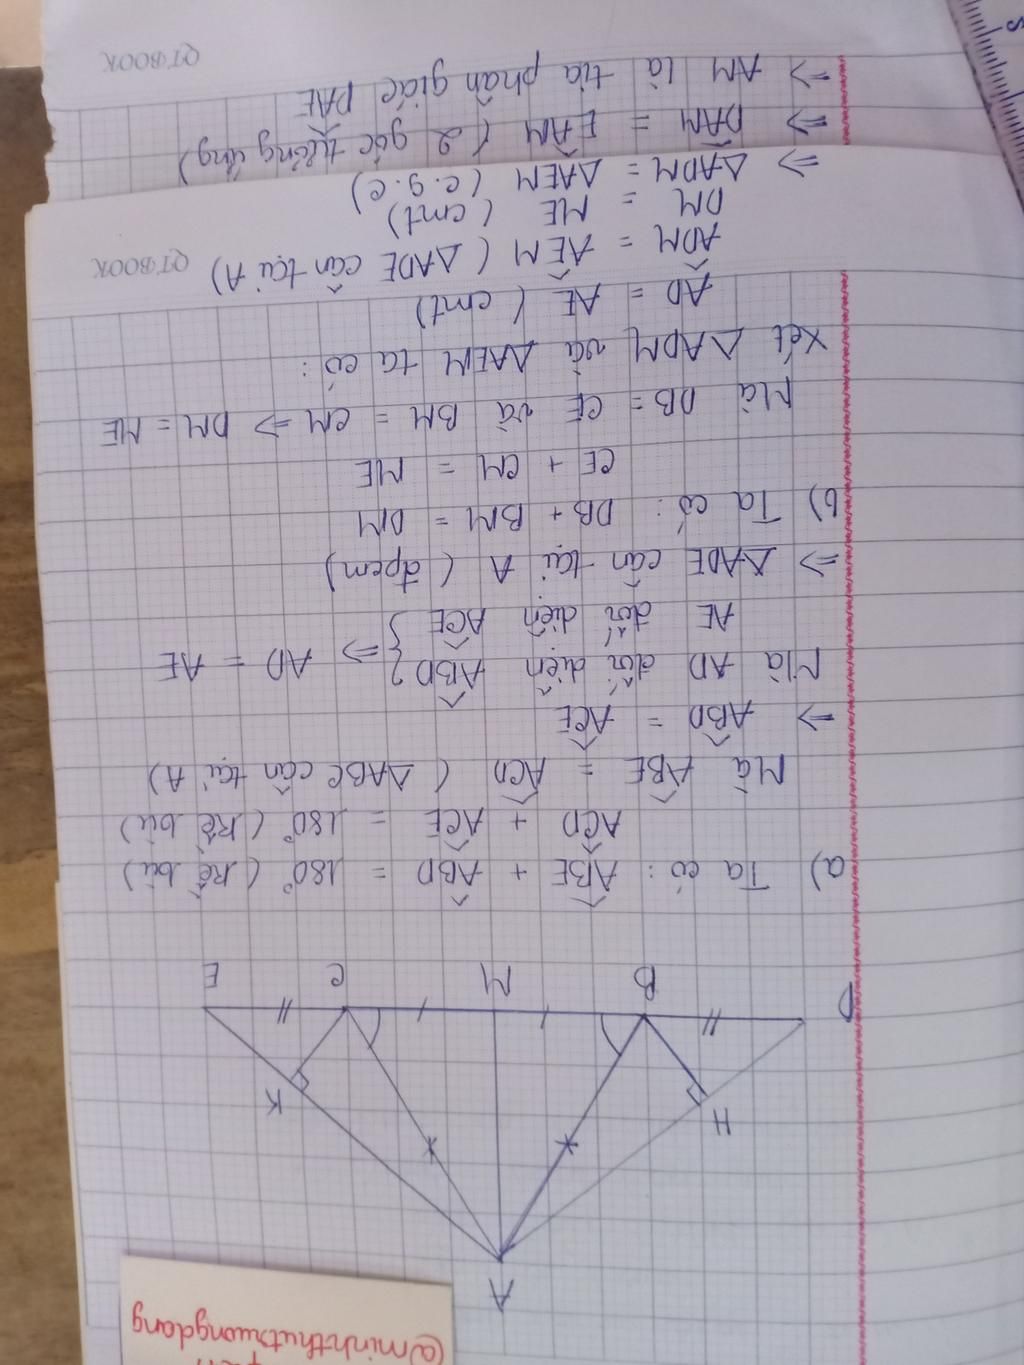 @minhthutruongdang
A
H
K
D
B
M
C
E
a) Ta có: ABE + ABD = 180° (kề bù)
ACD + ACE = 180° (kề bù)
Mà ABE = ACD (ΔABC cân tại A)
=> ABD = ACE
Mà AD đối diện ABD } => AD = AE
AE đối diện ACE
=> ΔADE cân tại A (đpcm)
b) Ta có: DB + BM = DM
CE + CM = ME
Mà DB = CE và BM = CM => DM = ME
Xét ΔADM và ΔAEM ta có:
AD = AE (cmt)
ADM = AEM (ΔADE cân tại A)
DM = ME (cmt)
=> ΔADM = ΔAEM (c.g.c)
=> DAM = EAM (2 góc tương ứng)
=> AM là tia phân giác DAE
QT·BOOK
QT·BOOK
S